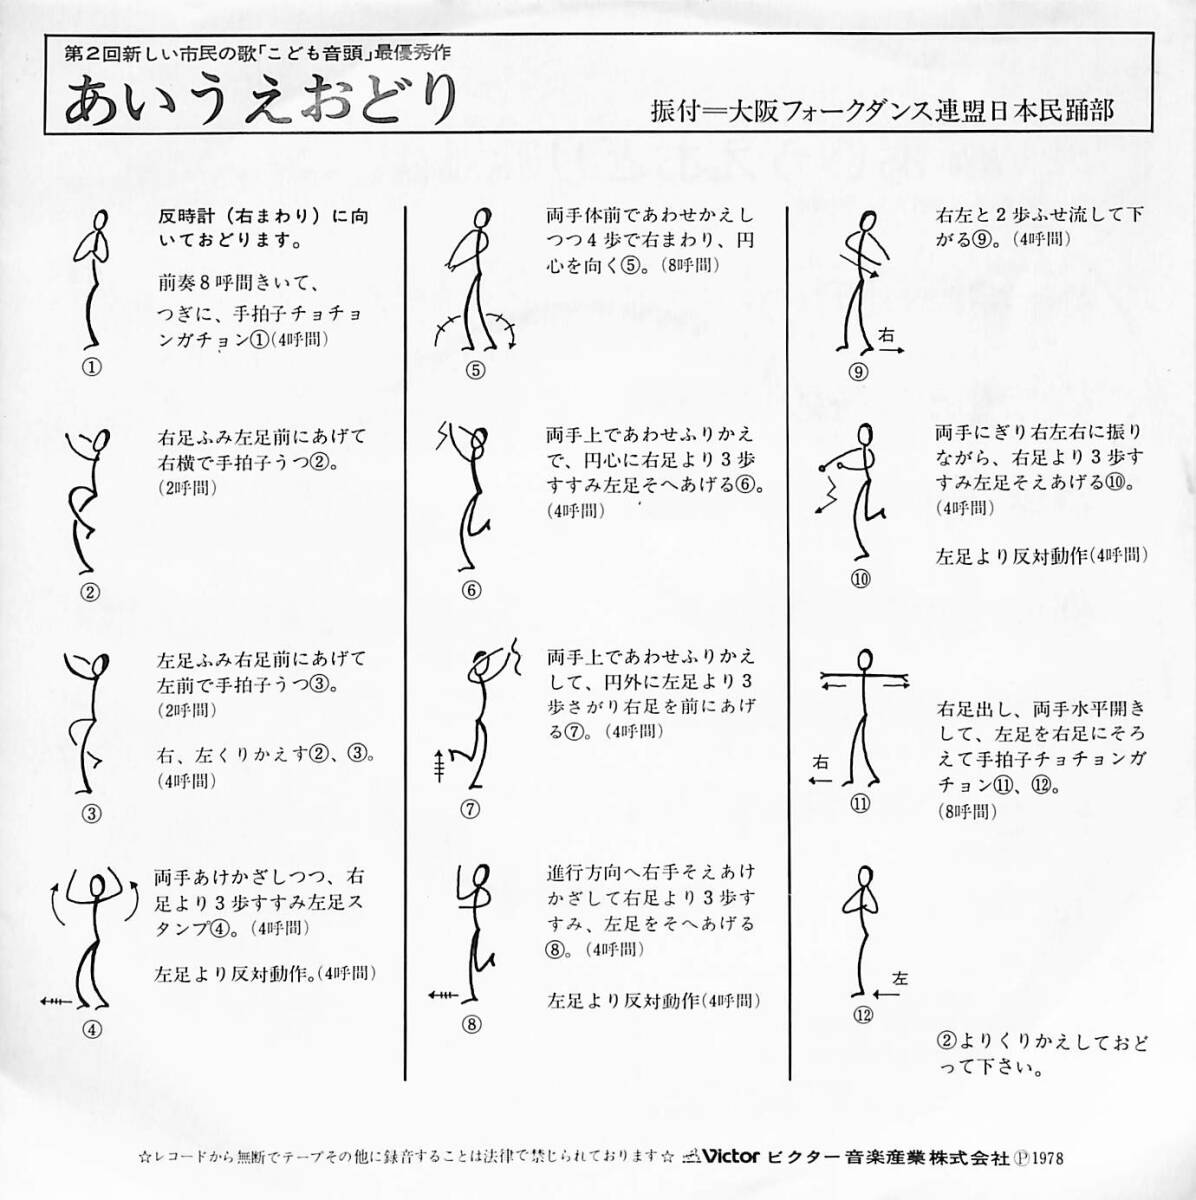 第2回新しい市民の歌「こども音頭」最優秀作
あいうえおどり
振付＝大阪フォークダンス連盟日本民踊部
反時計（右まわり）に向
いておどります。
前奏8呼間きいて、
つぎに、手拍子チョチョ
ンガチョン①(4呼間)
①
右足ふみ左足前にあげて
右横で手拍子うつ②。
(2呼間)
②
左足ふみ右足前にあげて
左前で手拍子うつ③。
(2呼間)
右、左くりかえす②、③。
(4呼間)
③
両手あけかざしつつ、右
足より3歩すすみ左足ス
タンプ④。(4呼間)
左足より反対動作。(4呼間)
④
両手体前であわせかえし
つつ4歩で右まわり、円
心を向く⑤。(8呼間)
⑤
両手上であわせふりかえ
で、円心に右足より3歩
すすみ左足そへあげる⑥。
(4呼間)
⑥
両手上であわせふりかえ
して、円外に左足より3
歩さがり右足を前にあげ
る⑦。(4呼間)
⑦
進行方向へ右手そえあけ
かざして右足より3歩す
すみ、左足をそへあげる
⑧。(4呼間)
左足より反対動作(4呼間)
⑧
右左と2歩ふせ流して下
がる⑨。(4呼間)
右
⑨
両手にぎり右左右に振り
ながら、右足より3歩す
すみ左足そえあげる⑩。
(4呼間)
左足より反対動作(4呼間)
⑩
右足出し、両手水平開き
して、左足を右足にそろ
えて手拍子チョチョンガ
チョン⑪、⑫。
(8呼間)
右
⑪
左
⑫
②よりくりかえしておど
って下さい。
☆レコードから無断でテープその他に録音することは法律で禁じられております☆ Victor ビクター音楽産業株式会社Ⓟ1978